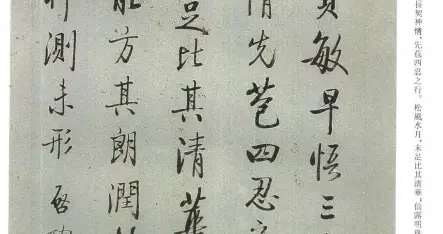 長契神情，先苞四忍之行。松風水月，未足比其清華，仙露明珠
敏早悟三
情先苞四忍
足比其清華
能方其朗潤
測未形